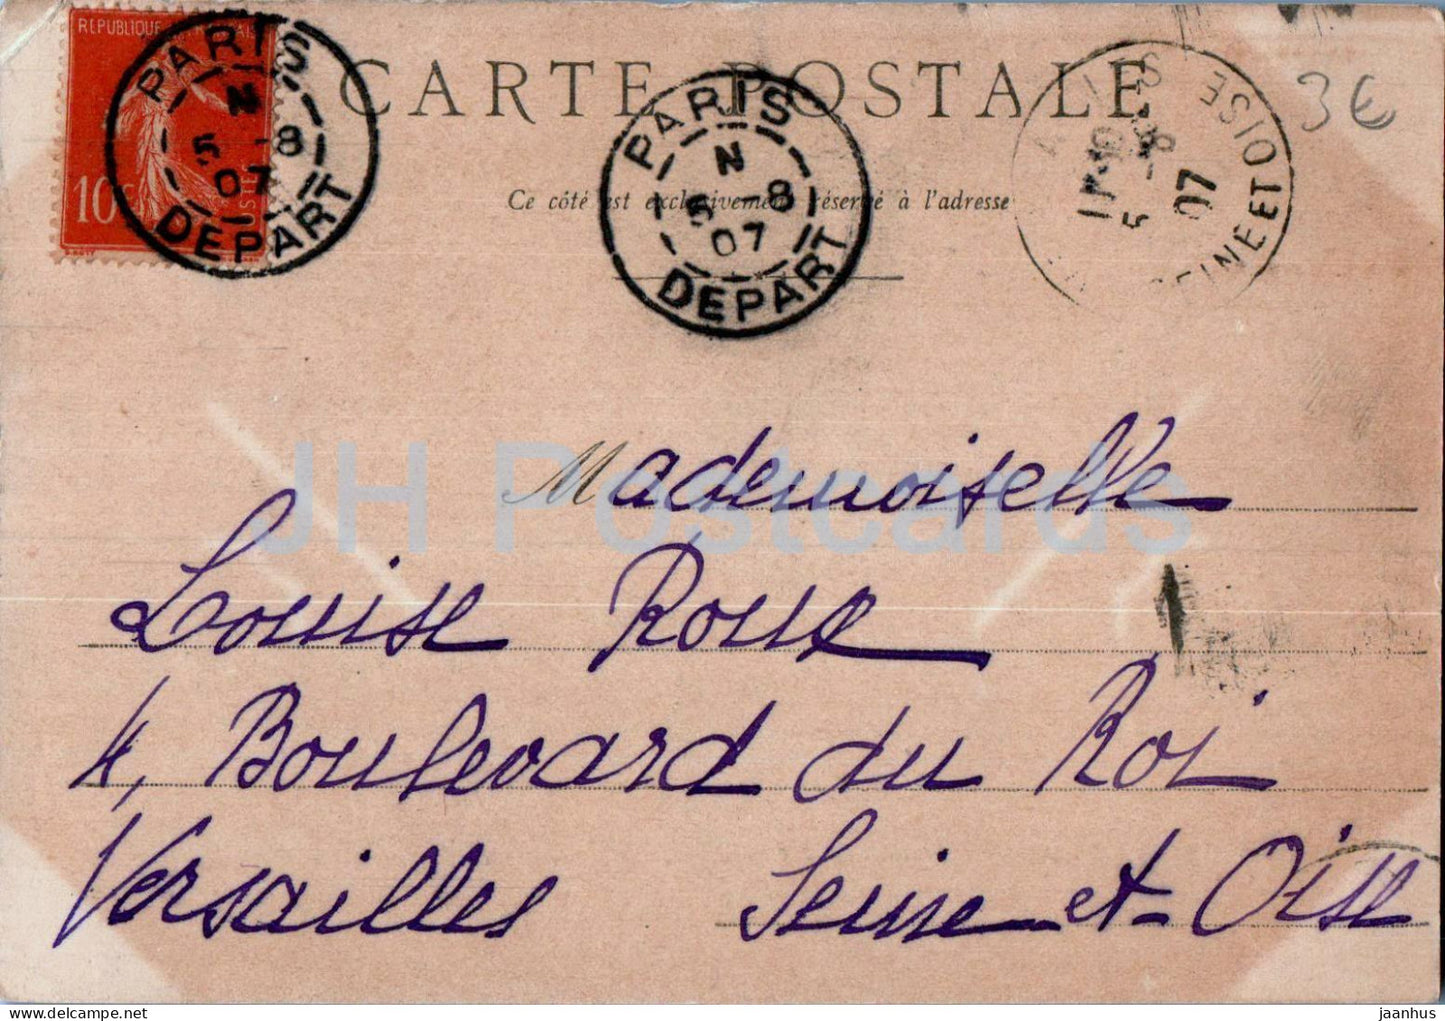 REPUBLIQUE FRANÇAISE
10c
PARIS
N
5 -8
07
DEPART
CARTE POSTALE
Ce côté est exclusivement réservé à l'adresse
PARIS
N
5 -8
07
DEPART
5 -8
07
SEINE ET OISE
3€
Mademoiselle
Louise Roux
4, Boulevard du Roi
Versailles Seine-et-Oise
JH Postcards
delcampe.net
jaanhus